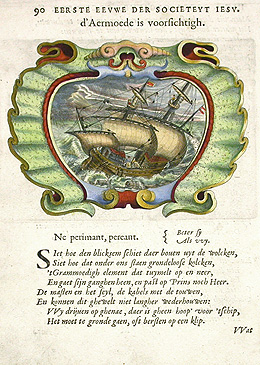 90 EERSTE EEUWE DER SOCIETEYT IESV.
d'Aermoede is voorsichtigh.
Ne perimant, pereant. { Beter sy
Als wy.
Siet hoe den blicksem schiet daer boven uyt de wolcken,
Siet hoe dat onder ons staen grondeloose kolcken,
'tGrammoedigh element dat tuymelt op en neer,
En gaet sijn ganghen heen, en past op Prins noch Heer.
De masten en het seyl, de kabels met de touwen,
En konnen dit ghewelt niet langher wederhouwen:
VVy drijven op ghenae, daer is gheen hoop' voor 'tschip,
Het moet te gronde gaen, oft bersten op een klip.
VVat